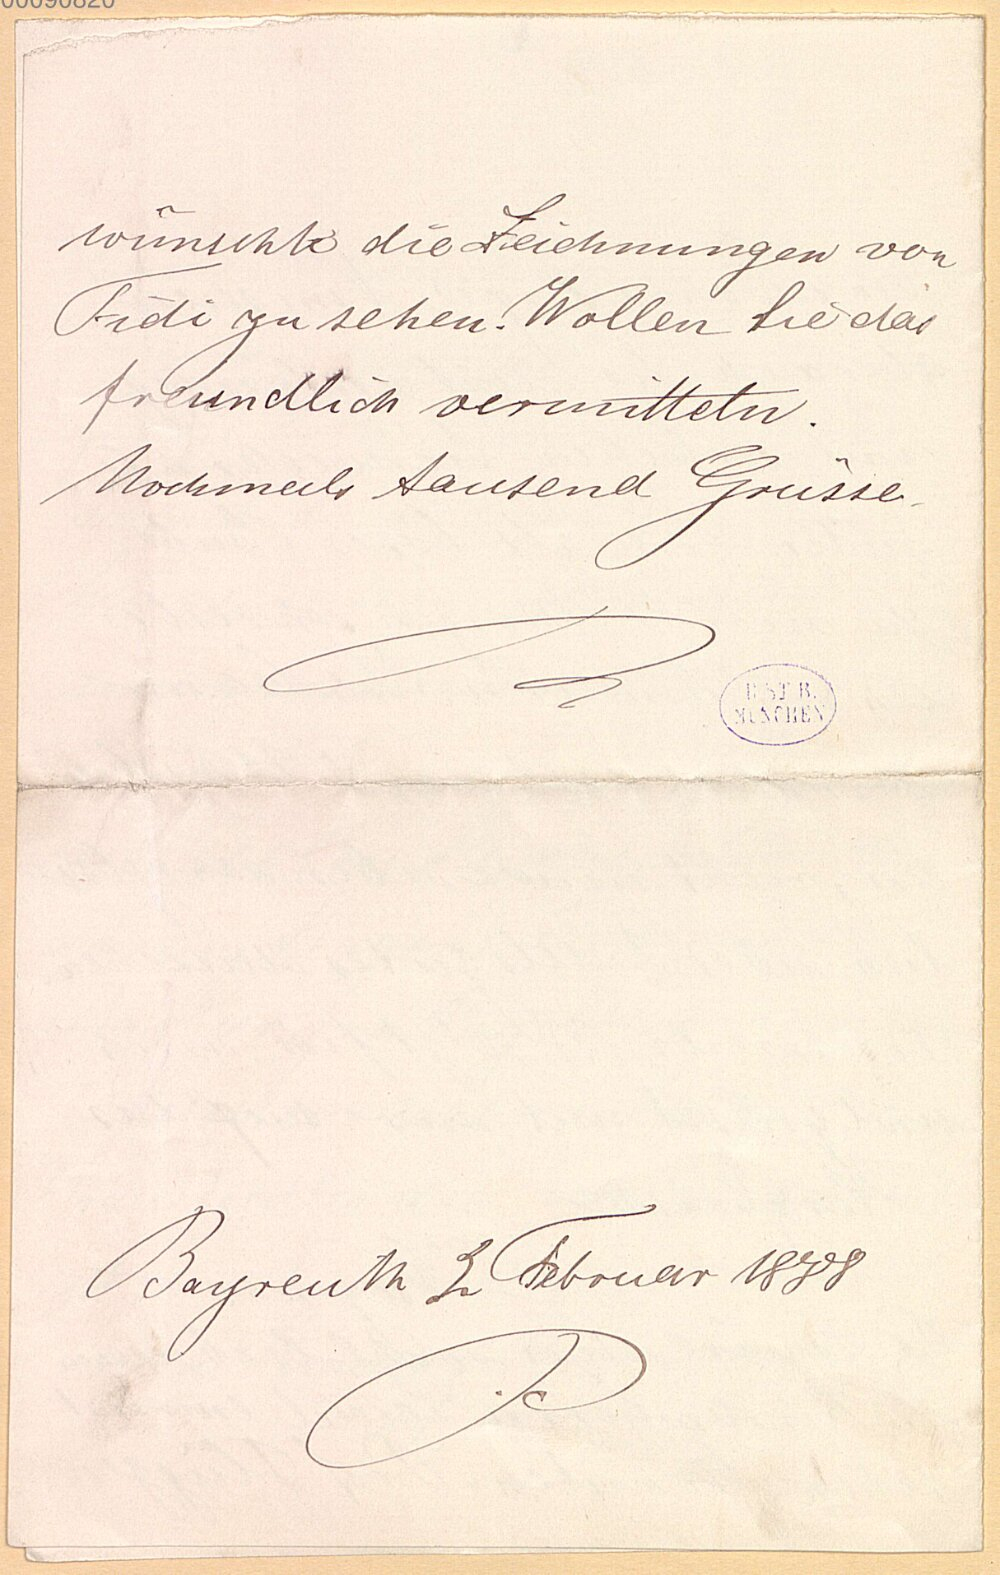 00090820
wünschte die Zeichnungen von
Fidi zu sehen. Wollen Sie das
freundlich vermitteln.
Nochmals tausend Grüsse.
B. ST. B.
MÜNCHEN
Bayreuth 2 Februar 1878